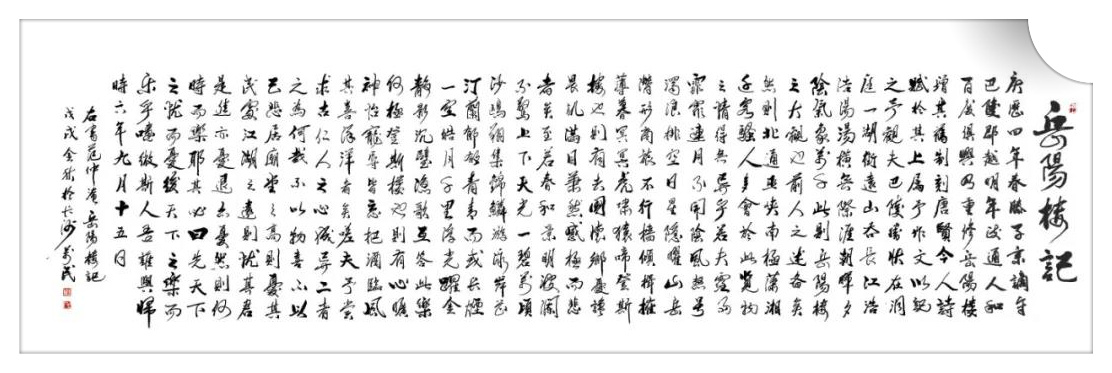 岳陽樓記
庆歷四年春滕子京謫守
巴陵郡越明年政通人和
百廢俱興乃重修岳陽樓
增其舊制刻唐賢今人詩
賦於其上属予作文以記
之予觀夫巴陵勝狀在洞
庭一湖銜遠山吞長江浩
浩湯湯橫無際涯朝暉夕
陰氣象萬千此則岳陽樓
之大觀也前人之述备矣
然則北通巫峽南極瀟湘
迁客騷人多會於此覽物
之情得無異乎若夫霪雨
霏霏連月不開陰風怒号
濁浪排空日星隱曜山岳
潛形商旅不行檣傾楫摧
薄暮冥冥虎嘯猿啼登斯
樓也則有去國懷鄉憂讒
畏譏滿目蕭然感極而悲
者矣至若春和景明波瀾
不驚上下天光一碧萬頃
沙鷗翔集錦鱗游泳岸芷
汀蘭郁郁青青而或長煙
一空皓月千里浮光耀金
静影沉璧漁歌互答此樂
何極登斯樓也則有心曠
神怡寵辱皆忘把酒臨風
其喜洋洋者矣嗟夫予嘗
求古仁人之心或異二者
之為何哉不以物喜不以
己悲居廟堂之高則憂其
民處江湖之遠則憂其君
是進亦憂退亦憂然則何
時而樂耶其必曰先天下
之憂而憂後天下之樂而
樂乎噫微斯人吾誰與歸
時六年九月十五日
右書范仲淹岳陽樓記
戊戌金秋於長沙万民